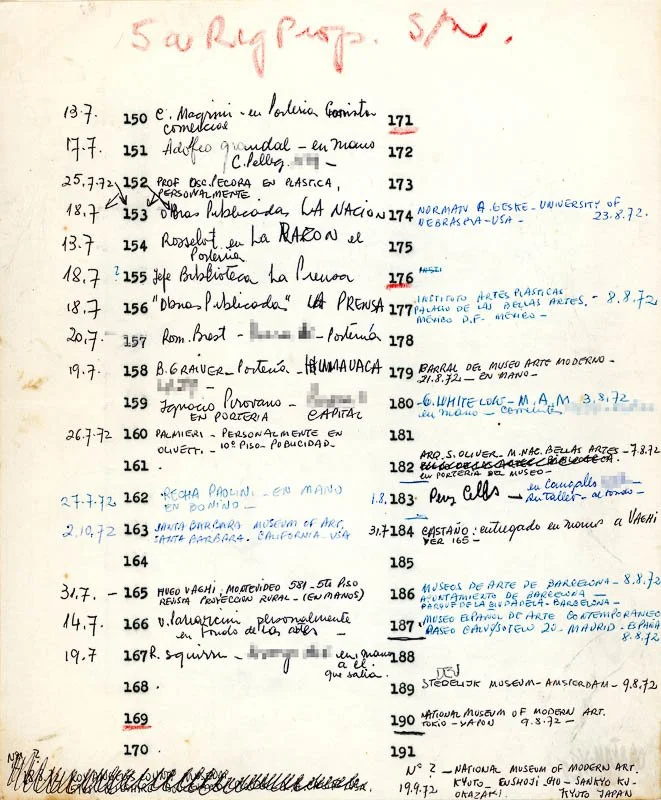 5a Reg Prop. S/N.
13.7. 150 C. Magrini - en Porteria
comercios
17.7. 151 Adolfo grandal - en mano
C. Pelleg.
25.7.72 152 PROF OSC. PECORA EN PLASTICA,
PERSONALMENTE
18.7 153 Obras Publicadas LA NACION
13.7. 154 Rosselot en LA RAZON el
Porteria
18.7 ? 155 Jefe Biblioteca La Prensa
18.7 156 "Obras Publicadas" LA PRENSA
20.7. 157 Rom. Brest - - Portería
19.7. 158 B. GRAIVER - Portería - HUMAUACA
159 Ignacio Pirovano -
EN PORTERIA CAPITAL
26.7.72 160 PALMIERI - PERSONALMENTE EN
OLIVETTI. - 10º PISO - PUBLICIDAD. -
161.
27.7.72 162 PAOLINI - EN MANO
EN BONINO -
2.10.72 163 SANTA BARBARA MUSEUM OF ART.
SANTA BARBARA. CALIFORNIA - USA
164
31.7. - 165 HUGO VAGHI. MONTEVIDEO 581 - 5º PISO
REVISTA PROYECCION RURAL - (EN MANOS)
14.7. 166 personalmente
en fondo de las artes -
19.7 167 R. Squirru - en mano
a el
que salia.
168.
169
170.
171
172
173
174 NORMAN A. GESKE - UNIVERSITY OF
NEBRASKA - USA - 23.8.72.
175
176
177 INSTITUTO ARTES PLASTICAS
PALACIO DE LAS BELLAS ARTES. - 8.8.72
MÉXICO D.F. MÉXICO -
178
179 BARRAL DEL MUSEO ARTE MODERNO -
21.8.72 - EN MANO -
180 G. WHITELOW - M.A.M. 3.8.72
en mano - Corrientes
181
182 ARQ. S. OLIVER - M. NAC. BELLAS ARTES - 7.8.72
en PORTERIA DEL MUSEO -
1.8. 183 Perez Celis → en Cangallo
Su taller - al fondo -
31.7 184 CASTAÑO: entregado en manos a VAGHI
VER 165 -
185
186 MUSEOS DE ARTE DE BARCELONA - 8.8.72
AYUNTAMIENTO DE BARCELONA -
PARQUE DE LA CIUDADELA - BARCELONA -
187 MUSEO ESPAÑOL DE ARTE CONTEMPORANEO
PASEO CALVO SOTELO 20. MADRID. ESPAÑA
8.8.72
188
189 STEDELIJK MUSEUM - AMSTERDAM - 9.8.72
190 NATIONAL MUSEUM OF MODERN ART.
TOKIO - YAPON 9.8.72 -
191
Nº ? - NATIONAL MUSEUM OF MODERN ART.
19.9.72 KYOTO. ENSHOJI CHO - SANKYO KU -
OKAZAKI. KYOTO JAPAN